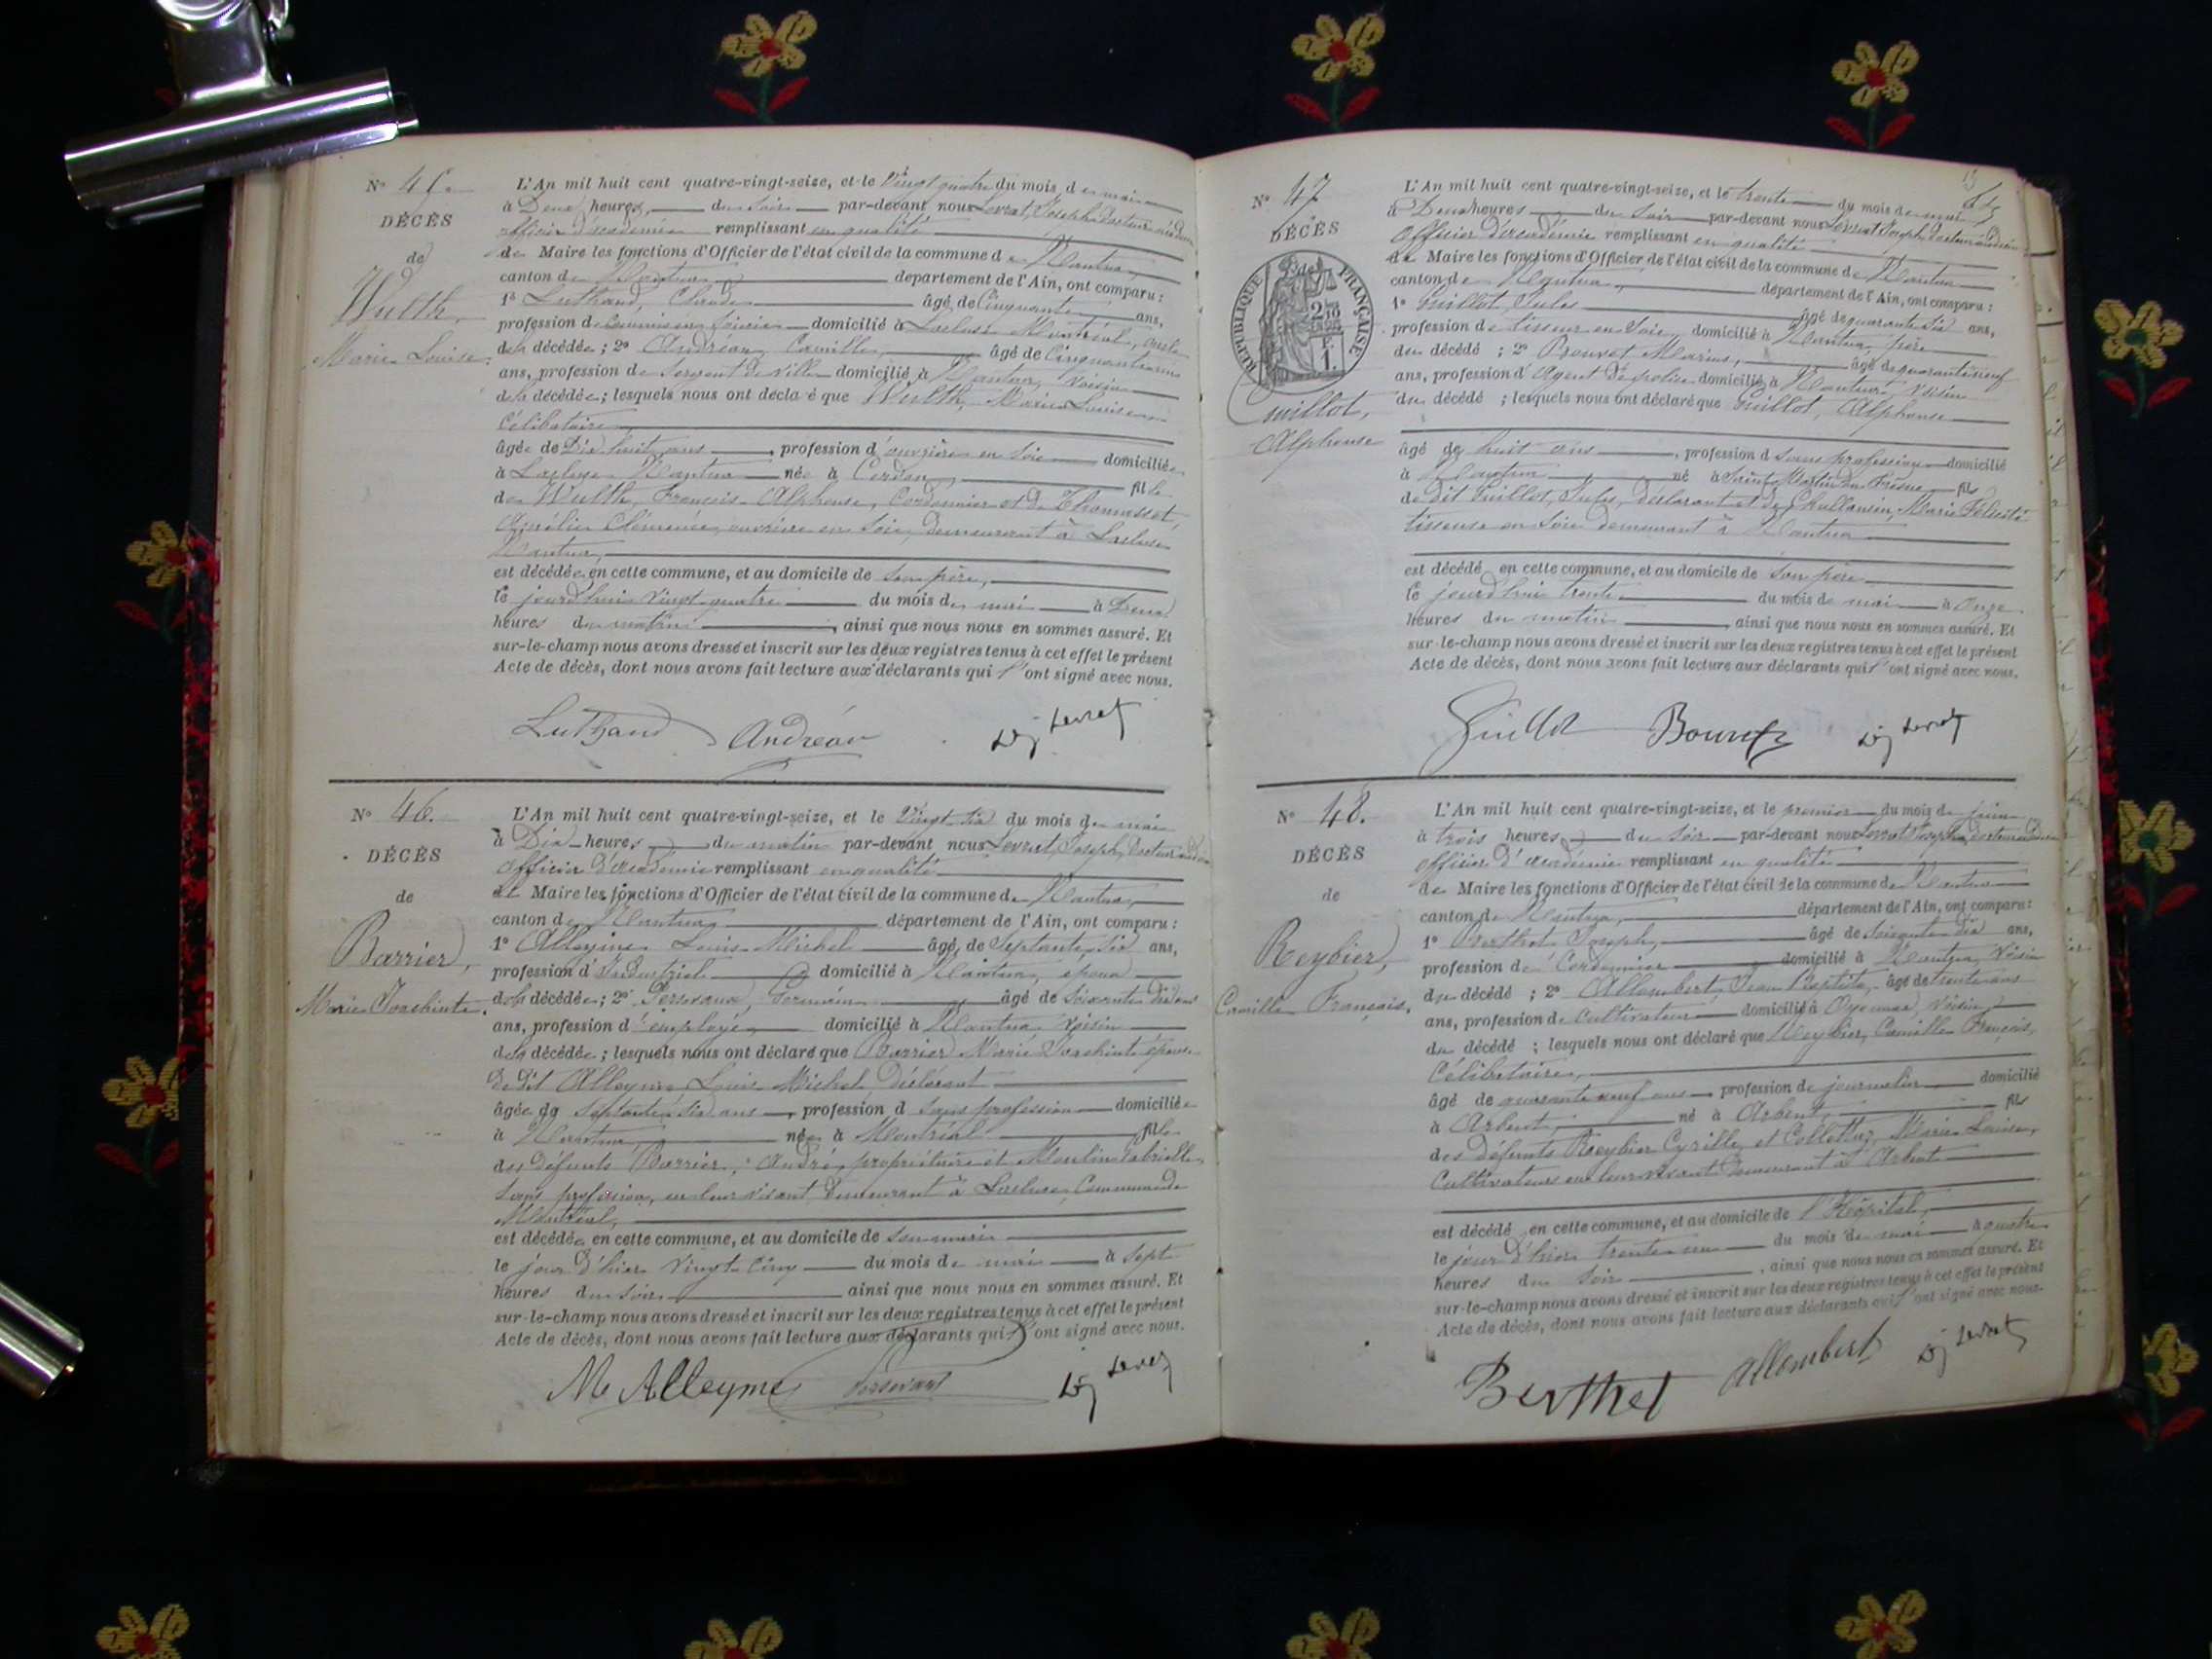 Nº 45.
DÉCÈS
de
Wulth,
Marie Louise.
L'An mil huit cent quatre-vingt-seize, et le Vingt quatre du mois de mai
à Deux heures, du soir par-devant nous Levrat, Joseph, Docteur médecin
officier d'académie remplissant en qualité
de Maire les fonctions d'Officier de l'état civil de la commune de Nantua,
canton de Nantua département de l'Ain, ont comparu :
1º Luthand, Claude âgé de Cinquante ans,
profession de domicilié à Lacluse Montréal, oncle
de la décédée ; 2º Andréan, Camille, âgé de Cinquante
ans, profession de Sergent de Ville domicilié à Nantua, voisin
de la décédée ; lesquels nous ont déclaré que Wulth, Marie Louise
Célibataire,
âgée de Dix huit ans, profession d'ouvrière en soie domiciliée
à Lacluse Nantua née à Cerdon, fille
de Wulth, François Alphonse, Cordonnier et de Thomasset,
Clémence, ouvrière en soie, demeurant à Lacluse
Nantua,
est décédée en cette commune, et au domicile de son père,
le jourd'hui vingt quatre du mois de mai à Deux
heures du matin, ainsi que nous nous en sommes assuré. Et
sur-le-champ nous avons dressé et inscrit sur les deux registres tenus à cet effet le présent
Acte de décès, dont nous avons fait lecture aux déclarants qui l'ont signé avec nous.
Luthand Andréan Dr J Levrat
Nº 46.
DÉCÈS
de
Barrier,
Marie Joachinte.
L'An mil huit cent quatre-vingt-seize, et le Vingt six du mois de mai
à Dix heures du matin par-devant nous Levrat, Joseph, Docteur médecin
officier d'académie remplissant en qualité
de Maire les fonctions d'Officier de l'état civil de la commune de Nantua,
canton de Nantua département de l'Ain, ont comparu :
1º Alleyme Louis Michel âgé de Septante six ans,
profession d'Industriel domicilié à Nantua, époux
de la décédée ; 2º Perrevaux, Germain âgé de Soixante dix
ans, profession d'employé domicilié à Nantua voisin
de la décédée ; lesquels nous ont déclaré que Barrier Marie Joachinte épouse
de dit Alleyme Louis Michel, déclarant
âgée de Septante six ans, profession d sans profession domiciliée
à Nantua, née à Montréal fille
des défunts Barrier, André, propriétaire et Moulin Gabrielle,
sans profession, en leur vivant demeurant à Lacluse, Commune de
Montréal,
est décédée en cette commune, et au domicile de son mari
le jour d'hier vingt cinq du mois de mai à Sept
heures du soir ainsi que nous nous en sommes assuré. Et
sur-le-champ nous avons dressé et inscrit sur les deux registres tenus à cet effet le présent
Acte de décès, dont nous avons fait lecture aux déclarants qui l'ont signé avec nous.
M Alleyme Dr J Levrat
Nº 47
DÉCÈS
de
RÉPUBLIQUE FRANÇAISE
Guillot,
Alphonse
L'An mil huit cent quatre-vingt-seize, et le trente du mois de mai
à Deux heures du soir par-devant nous Levrat Joseph, Docteur médecin
Officier d'académie remplissant en qualité
de Maire les fonctions d'Officier de l'état civil de la commune de Nantua
canton de Nantua, département de l'Ain, ont comparu :
1º Guillot Jules âgé de quarante six ans,
profession de tisseur en soie, domicilié à Nantua, père
du décédé ; 2º Bouvet Marius, âgé de quarante neuf
ans, profession d'Agent de police domicilié à Nantua, voisin
du décédé ; lesquels nous ont déclaré que Guillot, Alphonse
âgé de huit ans, profession d sans profession domicilié
à Nantua né à Saint Martin du Fresne fils
de dit Guillot, Jules, déclarant et de Marie Félicité
tisseuse en soie demeurant à Nantua
est décédé en cette commune, et au domicile de son père
le jourd'hui trente du mois de mai à onze
heures du matin, ainsi que nous nous en sommes assuré. Et
sur-le-champ nous avons dressé et inscrit sur les deux registres tenus à cet effet le présent
Acte de décès, dont nous avons fait lecture aux déclarants qui l'ont signé avec nous.
Guillot Bouvet Dr J Levrat
Nº 48.
DÉCÈS
de
Reybier,
Camille François.
L'An mil huit cent quatre-vingt-seize, et le premier du mois de juin
à trois heures du soir par-devant nous Levrat Joseph, docteur médecin
officier d'académie remplissant en qualité
de Maire les fonctions d'Officier de l'état civil de la commune de Nantua
canton de Nantua, département de l'Ain, ont comparu :
1º Berthet Joseph, âgé de soixante dix ans,
profession de Cordonnier domicilié à Nantua, voisin
du décédé ; 2º Allombert, Jean Baptiste, âgé de trente
ans, profession de Cultivateur domicilié à Oyonnax, voisin
du décédé ; lesquels nous ont déclaré que Reybier, Camille François,
Célibataire,
âgé de quarante neuf ans, profession de journalier domicilié
à Arbent, né à Arbent, fils
des défunts Reybier Cyrille, et Collettaz, Marie Louise,
Cultivateurs en leur vivant demeurant à Arbent
est décédé en cette commune, et au domicile de l'Hôpital,
le jour d'hier trente un du mois de mai à quatre
heures du soir, ainsi que nous nous en sommes assuré. Et
sur-le-champ nous avons dressé et inscrit sur les deux registres tenus à cet effet le présent
Acte de décès, dont nous avons fait lecture aux déclarants qui l'ont signé avec nous.
Berthet Allombert Dr J Levrat